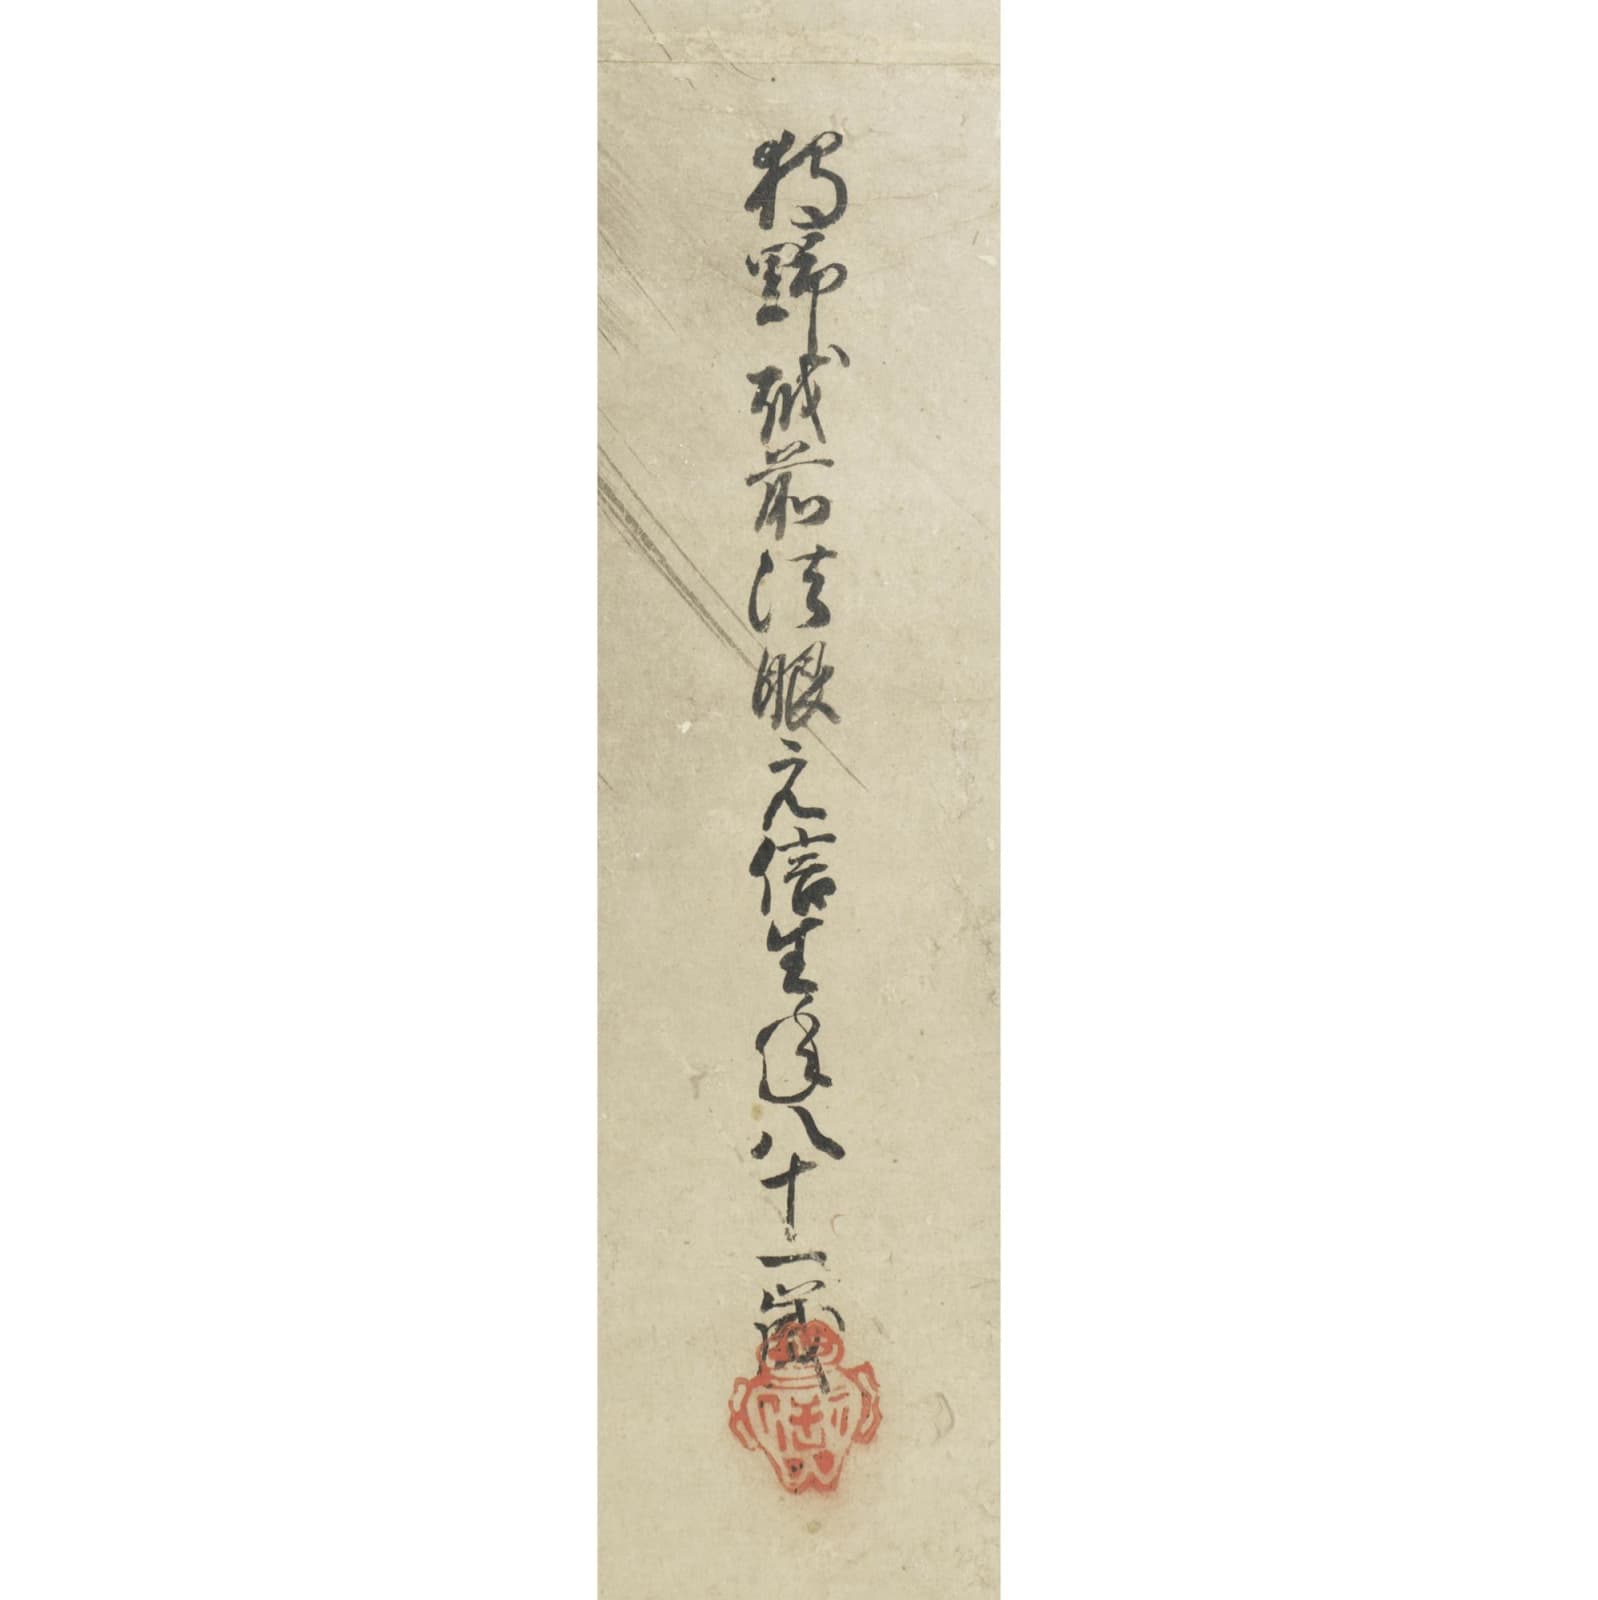 狩野越前法眼元信生年八十一歳